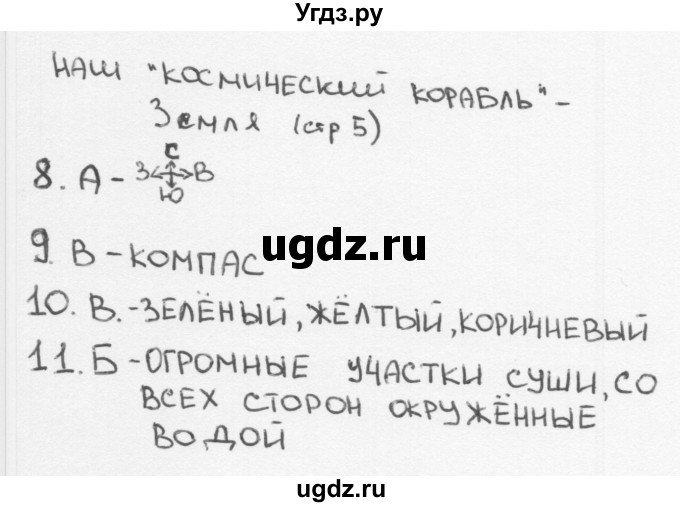 Угдз.ру
НАШ "КОСМИЧЕСКИЙ КОРАБЛЬ" -
Земля (стр 5)
С
8. А - З В
Ю
9. В - КОМПАС
ugdz.ru
10. В. - ЗЕЛЁНЫЙ, ЖЁЛТЫЙ, КОРИЧНЕВЫЙ
11. Б - ОГРОМНЫЕ УЧАСТКИ СУШИ, СО
ВСЕХ СТОРОН ОКРУЖЁННЫЕ
ВОДОЙ
ugdz.ru